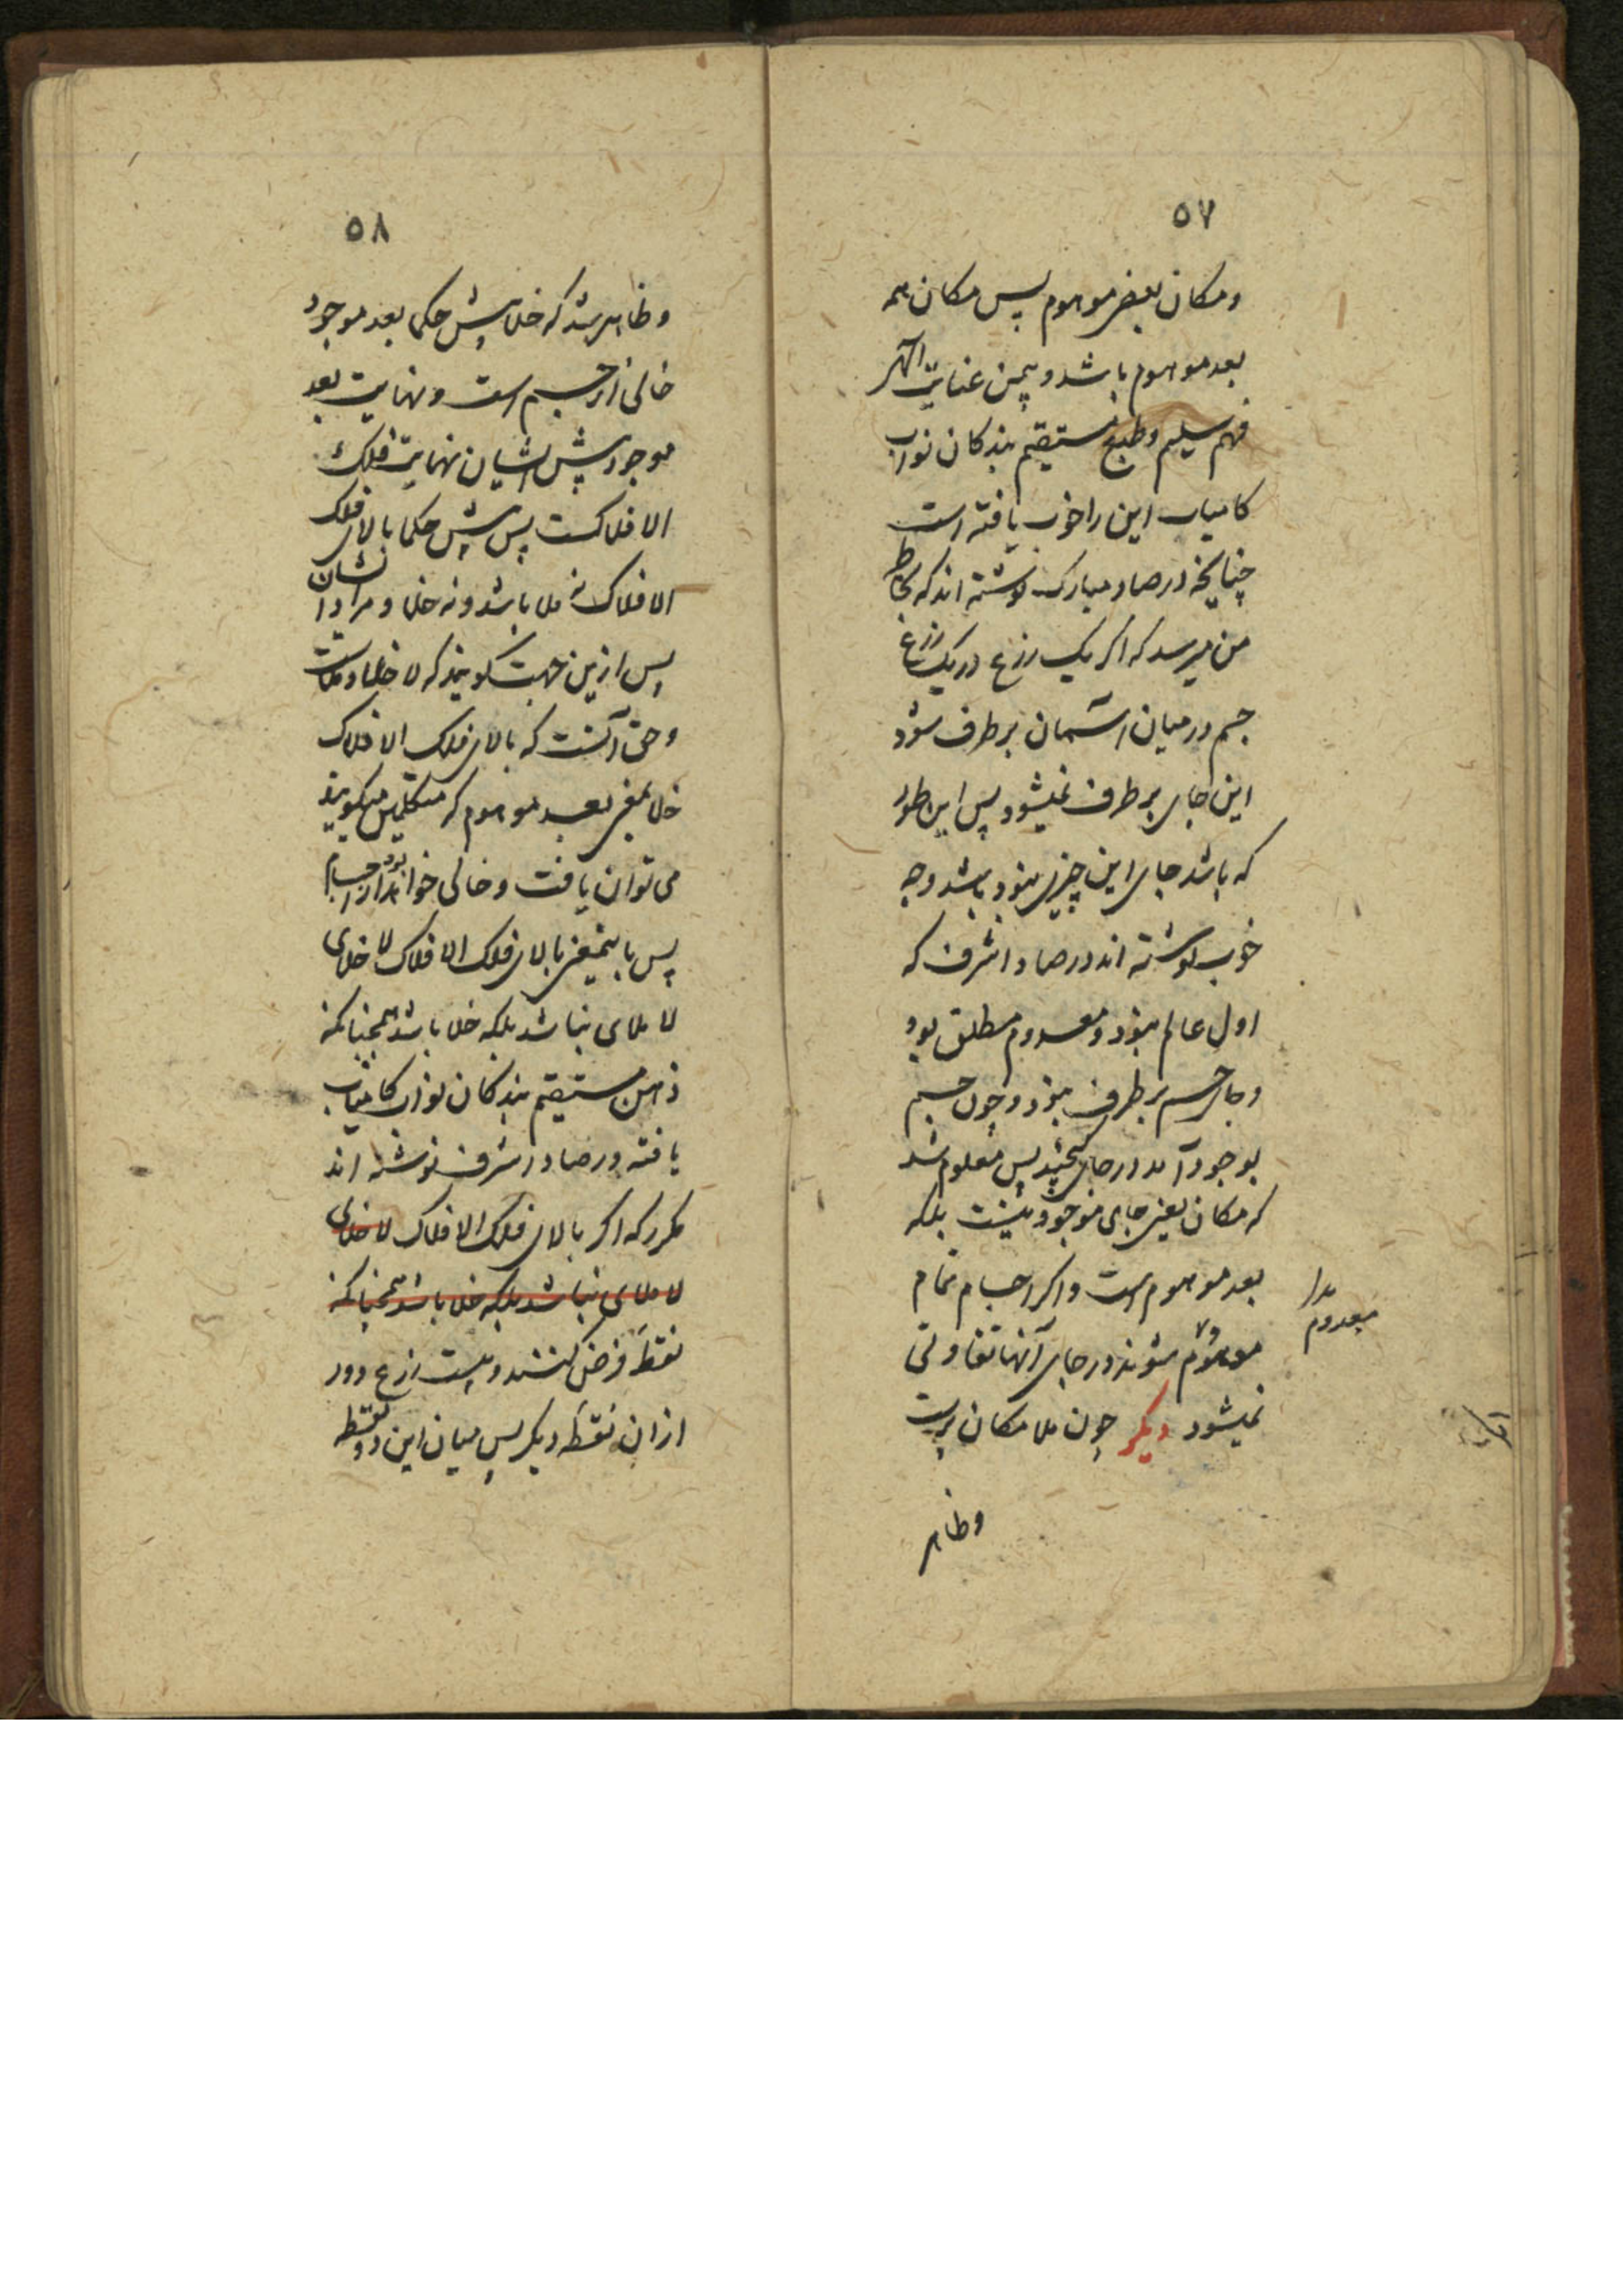 ۵۷
ومکان بعضی موهوم پس مکان همه
بعد موهوم باشد و بیمن عنایت الهی
فهم سلیم وطبع مستقیم بندکان نواب
کامیاب این را خوب یافته است
چنانچه در صاد مبارک نوشته اند که بخاطر
من میرسد که اکر یک زرع در یک زرع
جسم در میان آسمان بر طرف شود
این جای بر طرف نمیشود پس این طور
که باشد جای این چیزی نبود باشد وچه
خوب نوشته اند در صاد اشرف که
اول عالم نبود و معدوم مطلق بود
وجای جسم بر طرف نبود وچون جسم
بوجود آمد در جای کنجید پس معلوم شد
که مکان یعنی جای موجود نیست بلکه
بعد موهوم است واکر اجسام تمام
موهوم شوند در جای آنها تفاوتی
معدوم
نمیشود دیکر چون ملا مکان پرست
وظاهر
۵۸
وظاهر شد که خلا پیش حکما بعد موجود
خالی از جسم است ونهایت بعد
موجود پیش ایشان نهایت فلک
الافلاکست پس پیش حکما بالای فلک
الافلاک نه ملا باشد ونه خلا و مراد ایشان
پس ازین جهت کویند که لا خلا ولا ملاست
وحق آنست که بالای فلک الافلاک
خلا بمعنی بعد موهوم که متکلمین میکویند
می توان یافت وخالی خواهد بود از اجسام
پس باینمعنی بالای فلک الافلاک لا خلای
لا ملای نباشد بلکه خلا باشد همچنانکه
ذهن مستقیم بندکان نواب کامیاب
یافته در صاد اشرف نوشته اند
مکرر که اکر بالای فلک الافلاک لا خلای
لا ملای نباشد بلکه خلا باشد همچنانکه
نقطه فرض کنند و بیست زرع دور
از ان نقطه دیکر پس میان این دو نقطه